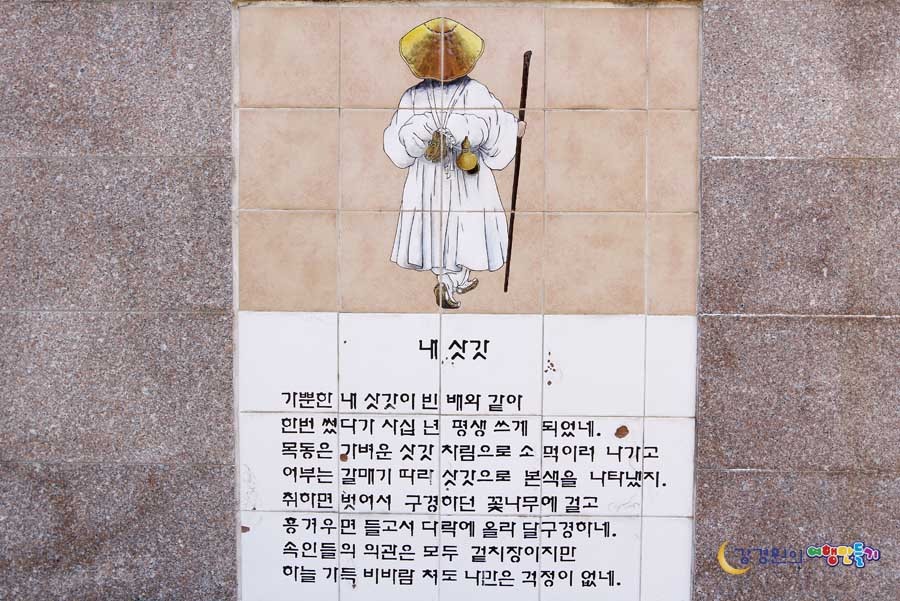 내 삿갓
가뿐한 내 삿갓이 빈 배와 같아
한번 썼다가 사십 년 평생 쓰게 되었네.
목동은 가벼운 삿갓 차림으로 소 먹이러 나가고
어부는 갈매기 따라 삿갓으로 본색을 나타냈지.
취하면 벗어서 구경하던 꽃나무에 걸고
흥겨우면 들고서 다락에 올라 달구경하네.
속인들의 의관은 모두 겉치장이지만
하늘 가득 비바람 쳐도 나만은 걱정이 없네.
김경원의 여행만들기